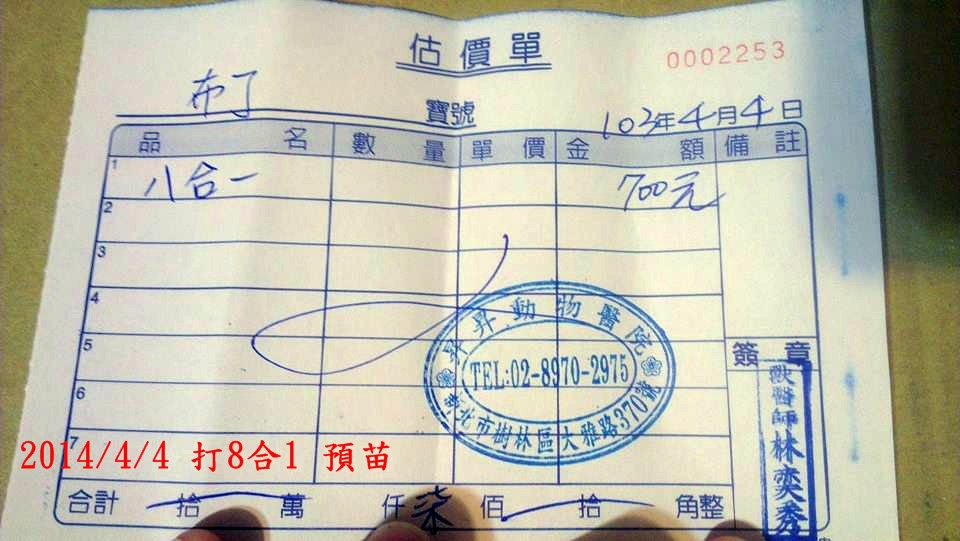 估價單
0002253
布丁 寶號
103年4月4日
品名 數量 單價 金額 備註
1 八合一 700元
2
3
4
5
6
7
昇昇動物醫院
TEL:02-8970-2975
新北市樹林區大雅路370號
簽章
獸醫師林奕秀
2014/4/4 打8合1 預苗
合計 拾 萬 仟 柒 佰 拾 角整